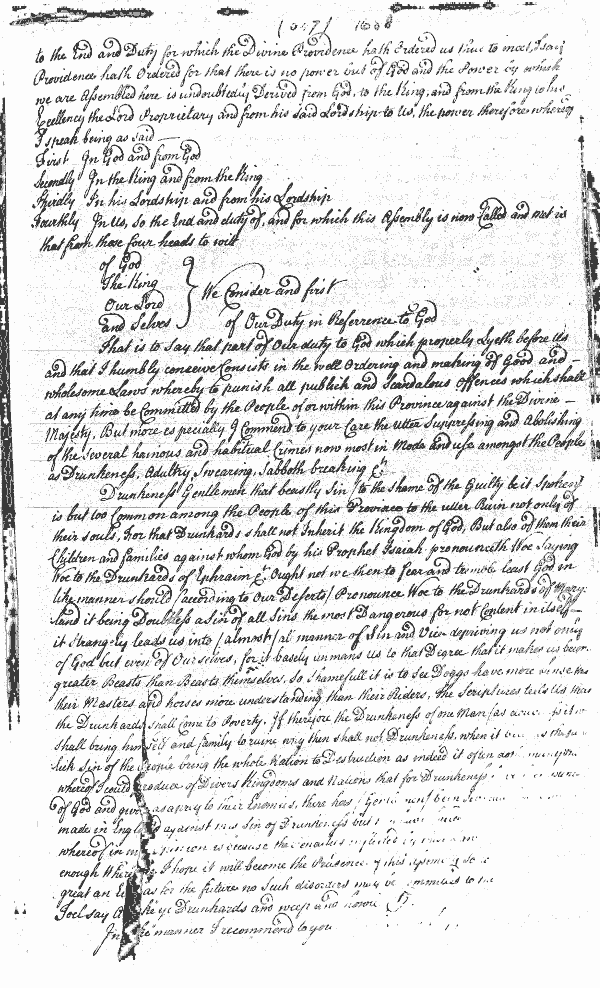 [ 547 ] 1688
to the End and Duty for which the Divine Providence hath Ordered us time to meet, I say
Providence hath Ordered for that there is no power but of God and the Power by which
we are Assembled here is undoubtedly Derived from God, to the King, and from the King to his
Excellency the Lord Proprietary and from his said Lordship to Us, the power therefore whereof
I speak being as said
First In God and from God
Secondly In the King and from the King
Thirdly In his Lordship and from his Lordship
Fourthly In Us, So the End and duty of, and for which this Assembly is now Called and met is
that from those four heads to wit
of God
The King
Our Lord
and Selves
We Consider and first
of Our Duty in Refference to God
That is to Say that part of Our duty to God which properly Lyeth before Us
and that I humbly conceive Consists in the well Ordering and making of Good and
wholesome Laws whereby to punish all publick and Scandalous Offences which shall
at any time be Committed by the People of or within this Province against the Divine
Majesty, But more especially I Commend to your Care the utter Suppressing and Abolishing
of the Several hainous and habitual Crimes now most in Mode and use amongst the People
as Drunkeness, Adultry, Swearing, Sabboth breaking &c
Drunkeness Gentlemen that beastly Sin / to the Shame of the Guilty be it Spoken /
is but too Common among the People of this Province to the utter Ruin not only of
their Souls, For that Drunkards shall not Inherit the Kingdom of God, But also of them their
Children and families against whom God by his Prophet Isaiah pronounceth Woe Saying
Woe to the Drunkards of Ephraim &c Ought not we then to fear and tremble least God in
like manner should / according to Our Deserts / Pronounce Woe to the Drunkards of Mary:
land it being Doubtless a Sin of all Sins the most Dangerous for not Content in itself
it Strangely leads us into / almost / al manner of Sin and Vice depriving us not only
of God but even of Ourselves, for it basely unmans us to that Degree that it makes us become
greater Beasts than Beasts themselves, So Shamefull it is to See Doggs have more sense than
their Masters and horses more understanding than their Riders, the Scriptures tells Us that
the Drunkards shall Come to Poverty. If therefore the Drunkeness of one Man
shall bring himself and family to ruine why then shall not Drunkeness, when it
lick Sin of the People bring the whole Nation to Destruction as indeed it often
whereof I could produce of Divers Kingdoms and Nations that for Drunkeness
of God and given as a prey to their Enemies, there has / Gentlemen / been
made in England against this Sin of Drunkeness but
whereof in my is because the
enough Wherefore I hope it will become the Prudence of this Assembly
great an Evil as for the future no Such disorders may be Committed
Joel say Awake ye Drunkards and weep and howle
In like manner I recommend to you